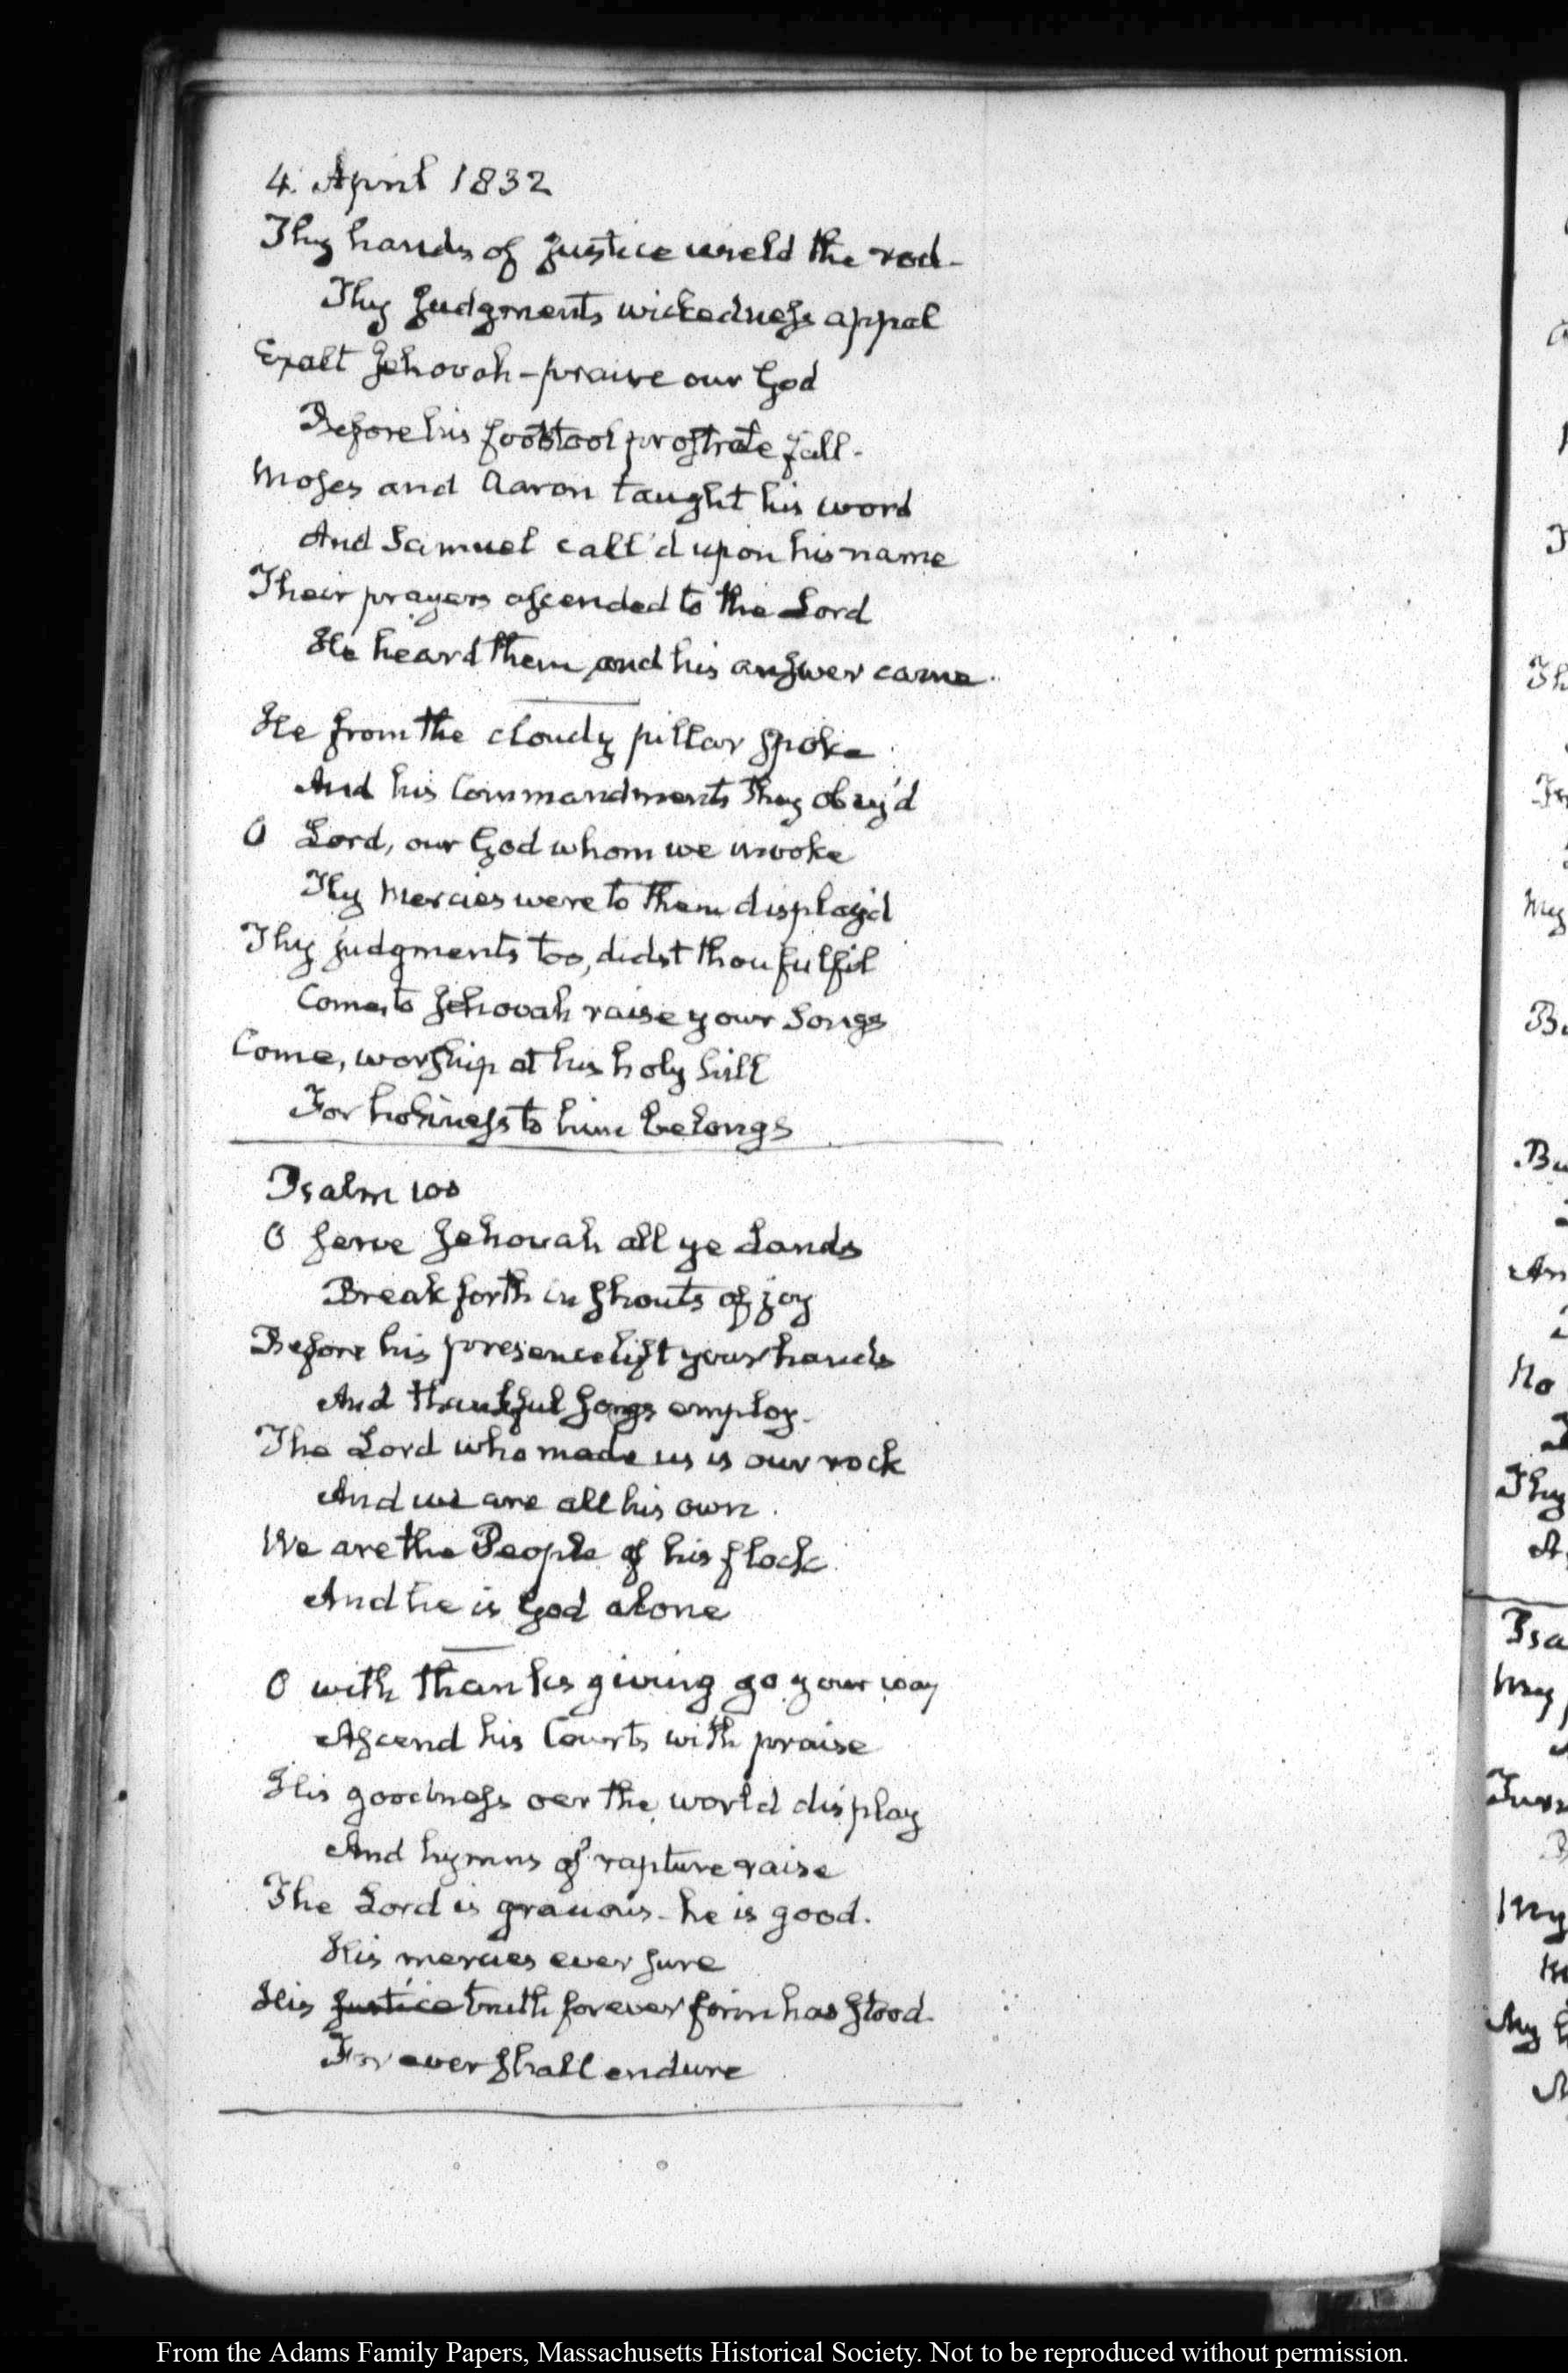 4. April 1832
Thy hands of Justice wield the rod -
Thy Judgments wickedness appal
Exalt Jehovah - praise our God
Before his footstool prostrate fall -
Moses and Aaron taught his word
And Samuel call'd upon his name
Their prayers ascended to the Lord
He heard them and his answer came.
He from the cloudy pillar spoke
And his Commandments they obey'd
O Lord, our God whom we invoke
Thy Mercies were to them display'd
Thy judgments too, didst thou fulfil
Come, to Jehovah raise your Songs
Come, worship at his holy hill
For holiness to him belongs
Psalm 100
O serve Jehovah all ye Lands
Break forth in shouts of joy
Before his presence lift your hands
And thankful songs employ.
The Lord who made us is our rock
And we are all his own.
We are the People of his flock
And he is God alone
O with thanksgiving go your way
Ascend his Courts with praise
His goodness oer the world display
And hymns of rapture raise
The Lord is gracious - he is good.
His mercies ever sure
His Justice truth forever firm has stood.
For ever shall endure
My
Psa
My
My
My
From the Adams Family Papers, Massachusetts Historical Society. Not to be reproduced without permission.